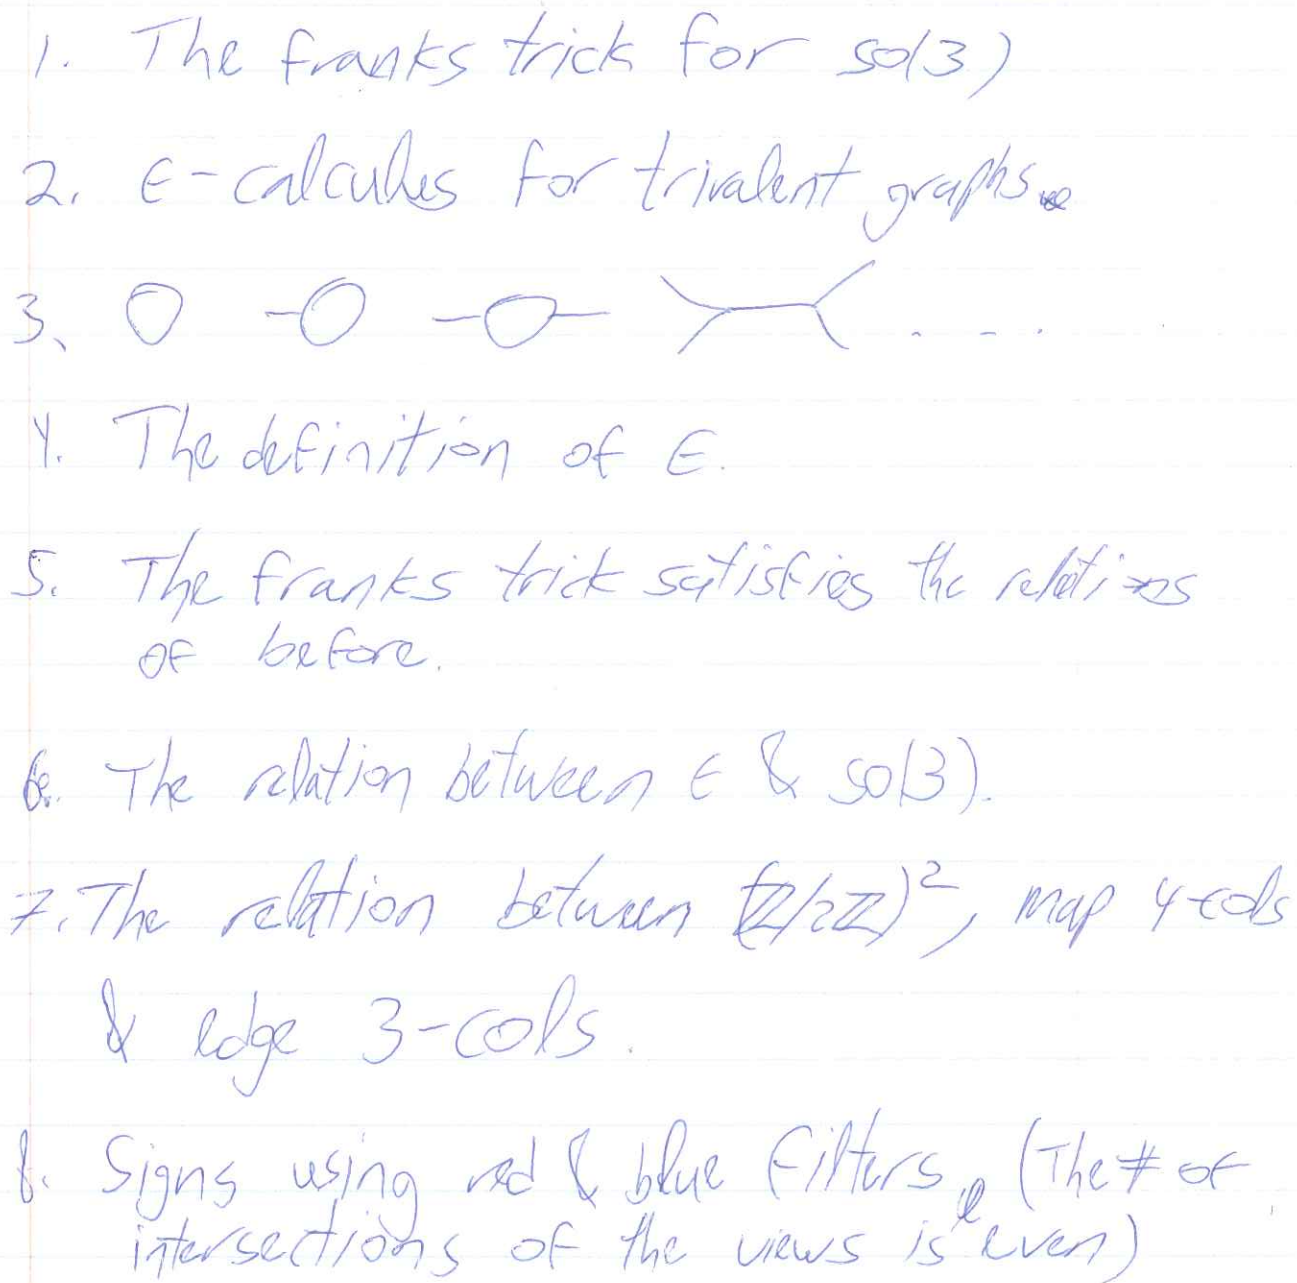 1. The franks trick for so(3)
2. ε-calculus for trivalent graphs.
3.
4. The definition of ε.
5. The franks trick satisfies the relations
of before.
6. The relation between ε & so(3).
7. The relation between (ℤ/2ℤ)², map 4-cols
& edge 3-cols.
8. Signs using red & blue filters, (The # of
intersections of the views is even)